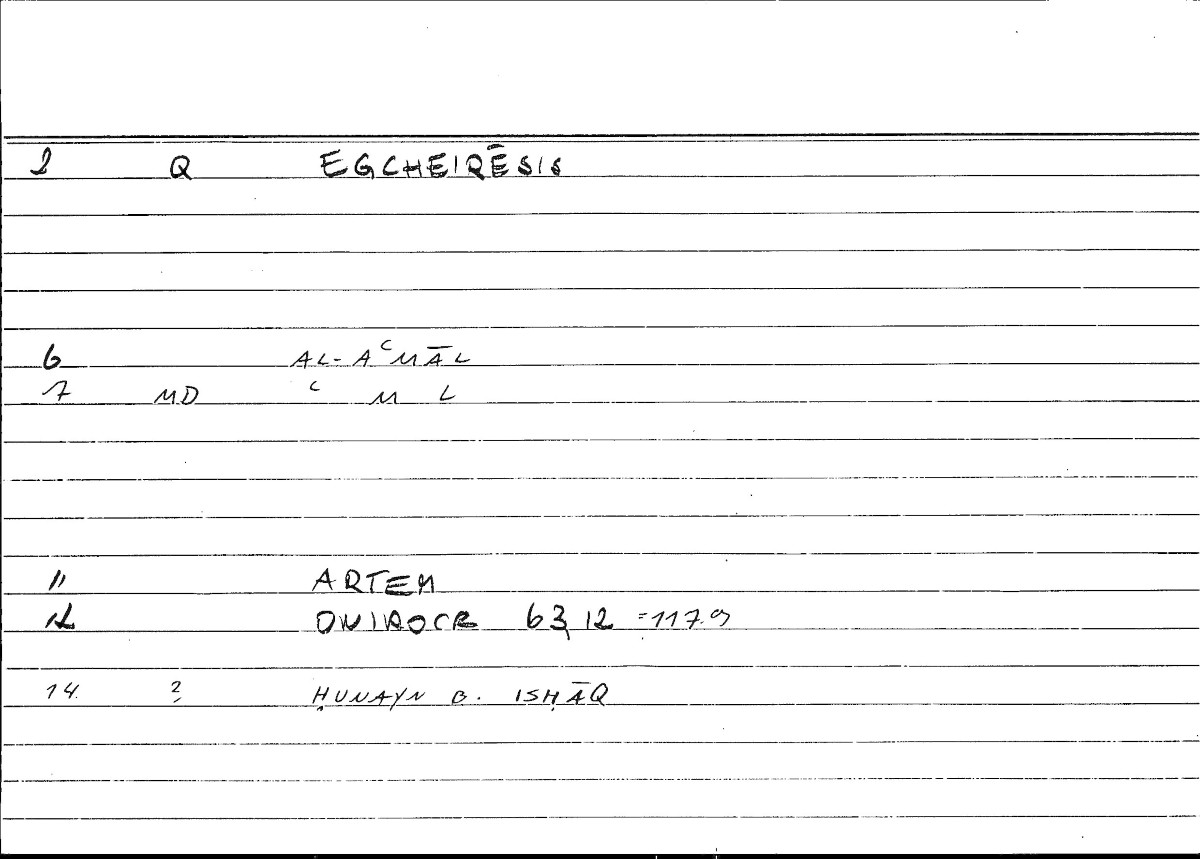 1 Q EGCHEIRĒSIS
6 AL-AʿMĀL
7 MD ʿ M L
11 ARTEM
12 ONIROCR 63,12 =117.9
14. 2 ḤUNAYN B. ISḤĀQ